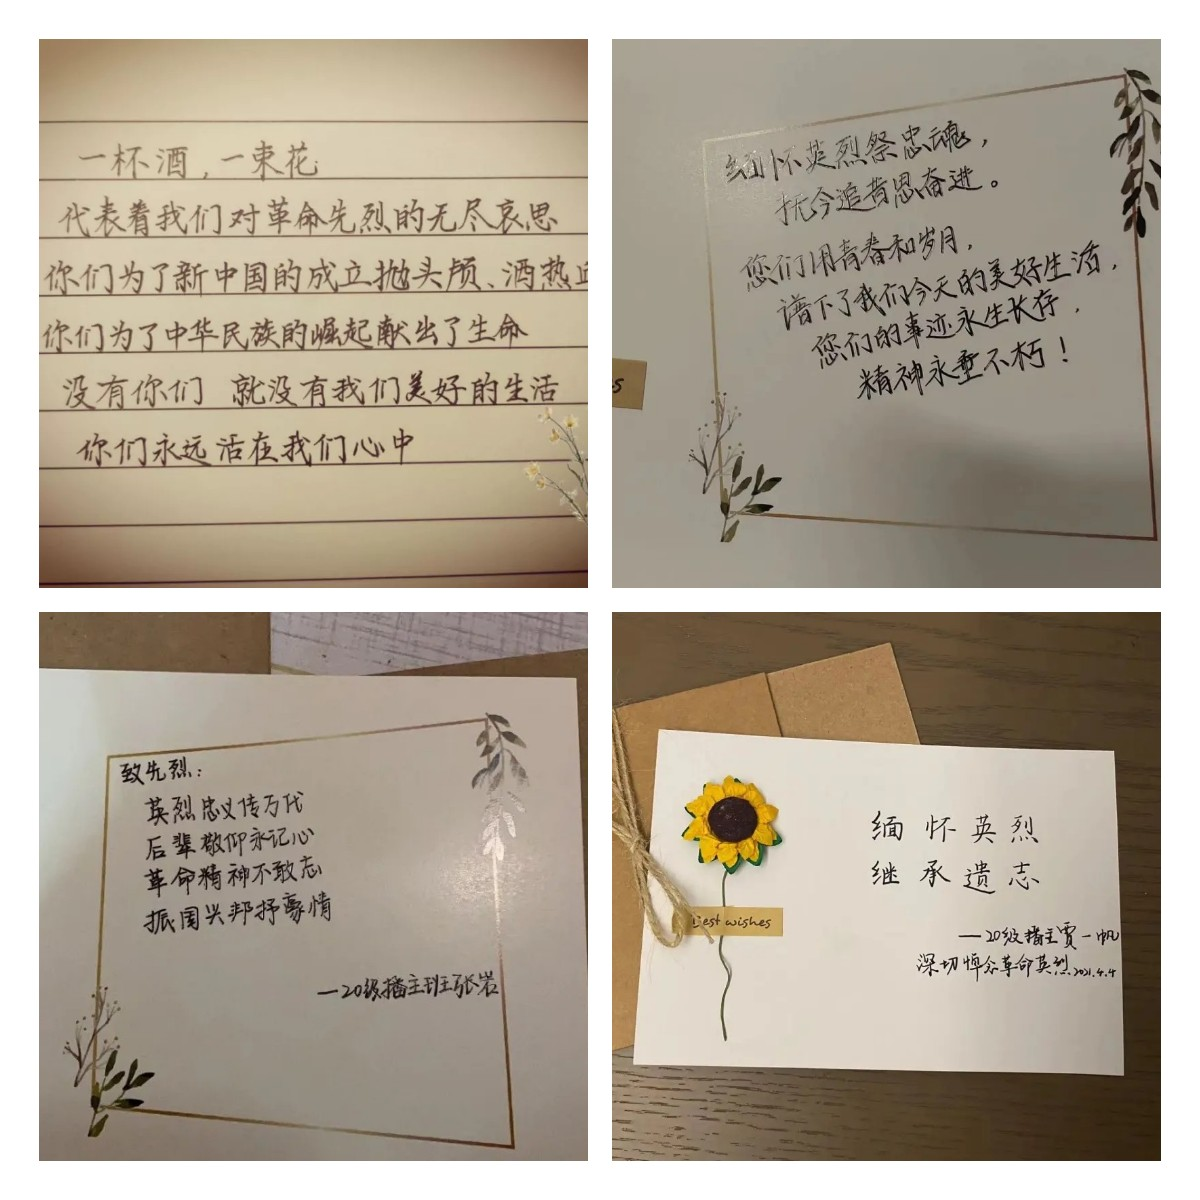 一杯酒，一束花
代表着我们对革命先烈的无尽哀思
你们为了新中国的成立抛头颅、洒热血
你们为了中华民族的崛起献出了生命
没有你们 就没有我们美好的生活
你们永远活在我们心中
缅怀英烈祭忠魂，
抚今追昔思奋进。
您们用青春和岁月，
谱下了我们今天的美好生活，
您们的事迹永生长存，
精神永垂不朽！
s
致先烈：
英烈忠义传万代
后辈敬仰永记心
革命精神不敢忘
振国兴邦抒豪情
—20级播主班张岩
缅怀英烈
继承遗志
—20级播主贾一帆
深切悼念革命英烈2021.4.4
Best wishes